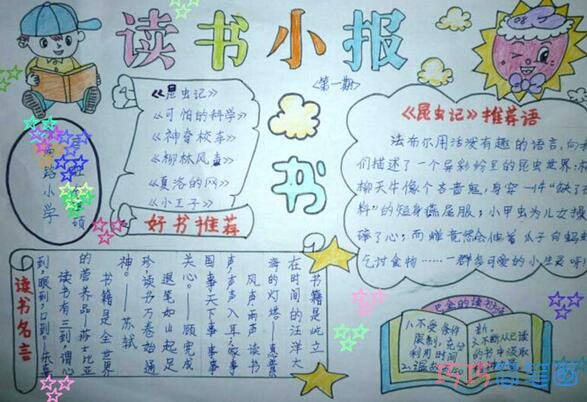 读书小报
08
第一期
《昆虫记》
《可怕的科学》
《神奇校车》
《柳林风声》
《夏洛的网》
《小王子》
好书推荐
书
《昆虫记》推荐语
法布尔用活泼有趣的语言,向我
们描述了一个异彩纷呈的昆虫世界:杨
柳天牛像个吝啬鬼,身穿一件“缺了
料”的短身燕尾服;小甲虫为儿女操
碎了心;而蝉竟然会
乞讨食物……一群多可爱的小生灵呀!
路小学
读书名言
书籍是屹立
在时间的汪洋大
海的灯塔——惠普
风声雨声读书
声,声声入耳;家事
国事天下事事事
关心。——顾宪成
退笔如山未足
珍,读书万卷始通
神。——苏轼
书籍是全世界
的营养品。莎士比亚
读书有三到,谓心
到,眼到,口到。朱熹
的读书
1.不受条件
限制,充分
利用时间
2.温故
新。
3.不断从已读
的书中汲取
巧巧简笔画